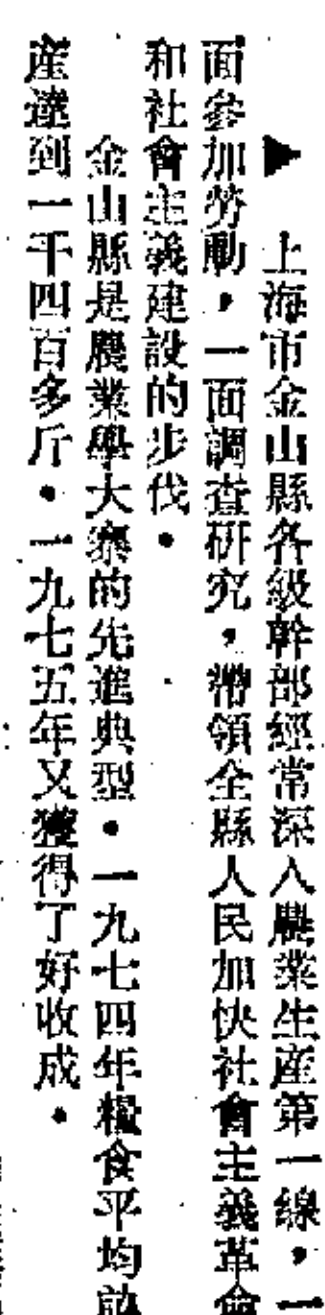 ▶ 上海市金山縣各級幹部經常深入農業生產第一線，一
面參加勞動，一面調查研究，帶領全縣人民加快社會主義革命
和社會主義建設的步伐。
金山縣是農業學大寨的先進典型。一九七四年糧食平均畝
產達到一千四百多斤。一九七五年又獲得了好收成。